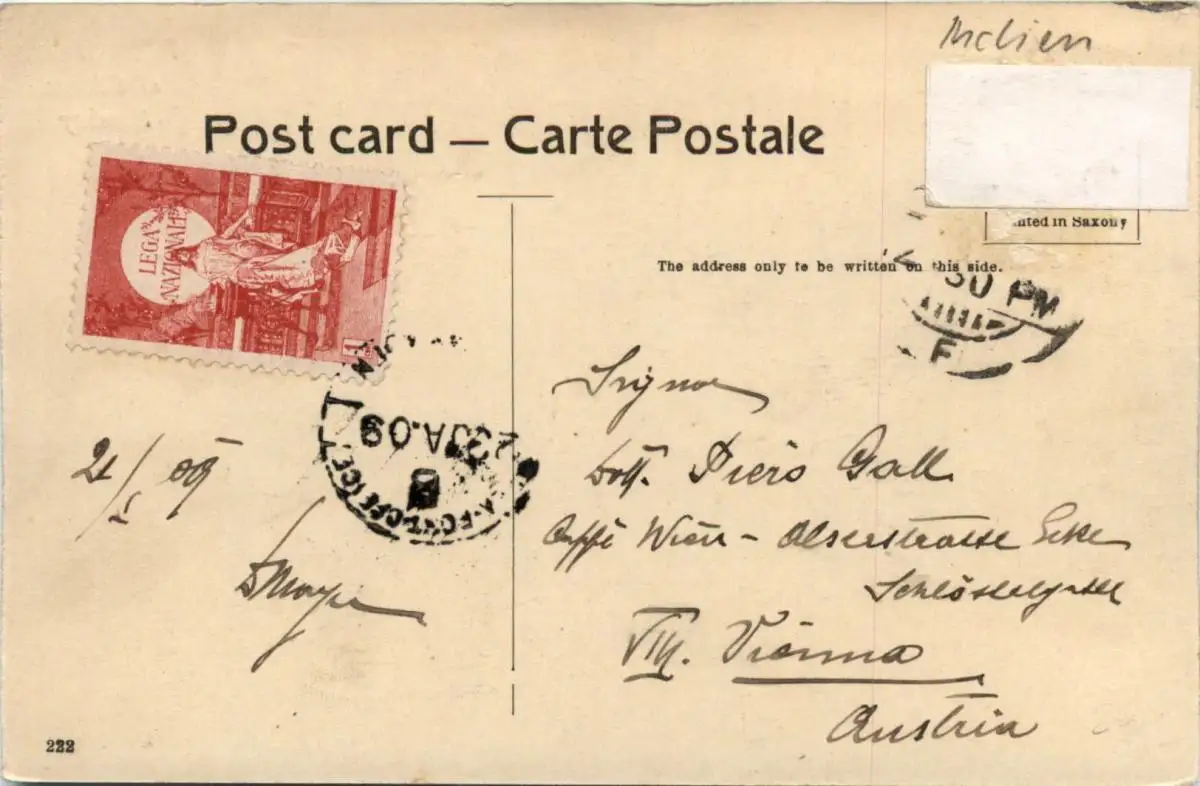 Indien
Post card — Carte Postale
LEGA
NAZIONALE
1
Printed in Saxony
The address only to be written on this side.
30 PM
F
23 JA.09
21/I 09
Signor
Dott. Piero Gall
Caffè Wien - Alserstrasse Ecke
Schlösselgasse
VIII. Vienna
Austria
222